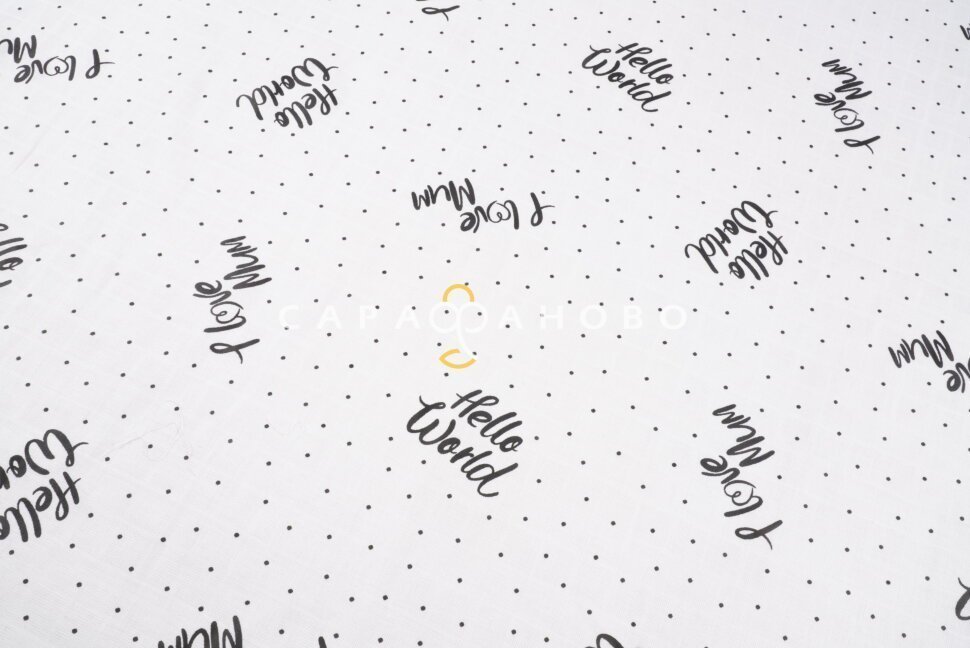 I love
Mum
Hello
World
Hello
World
I love
Mum
I love
Mum
Hello
World
I love
Mum
САРАФАНОВО
love
Mum
Hello
World
I love
Mum
Hello
Mum